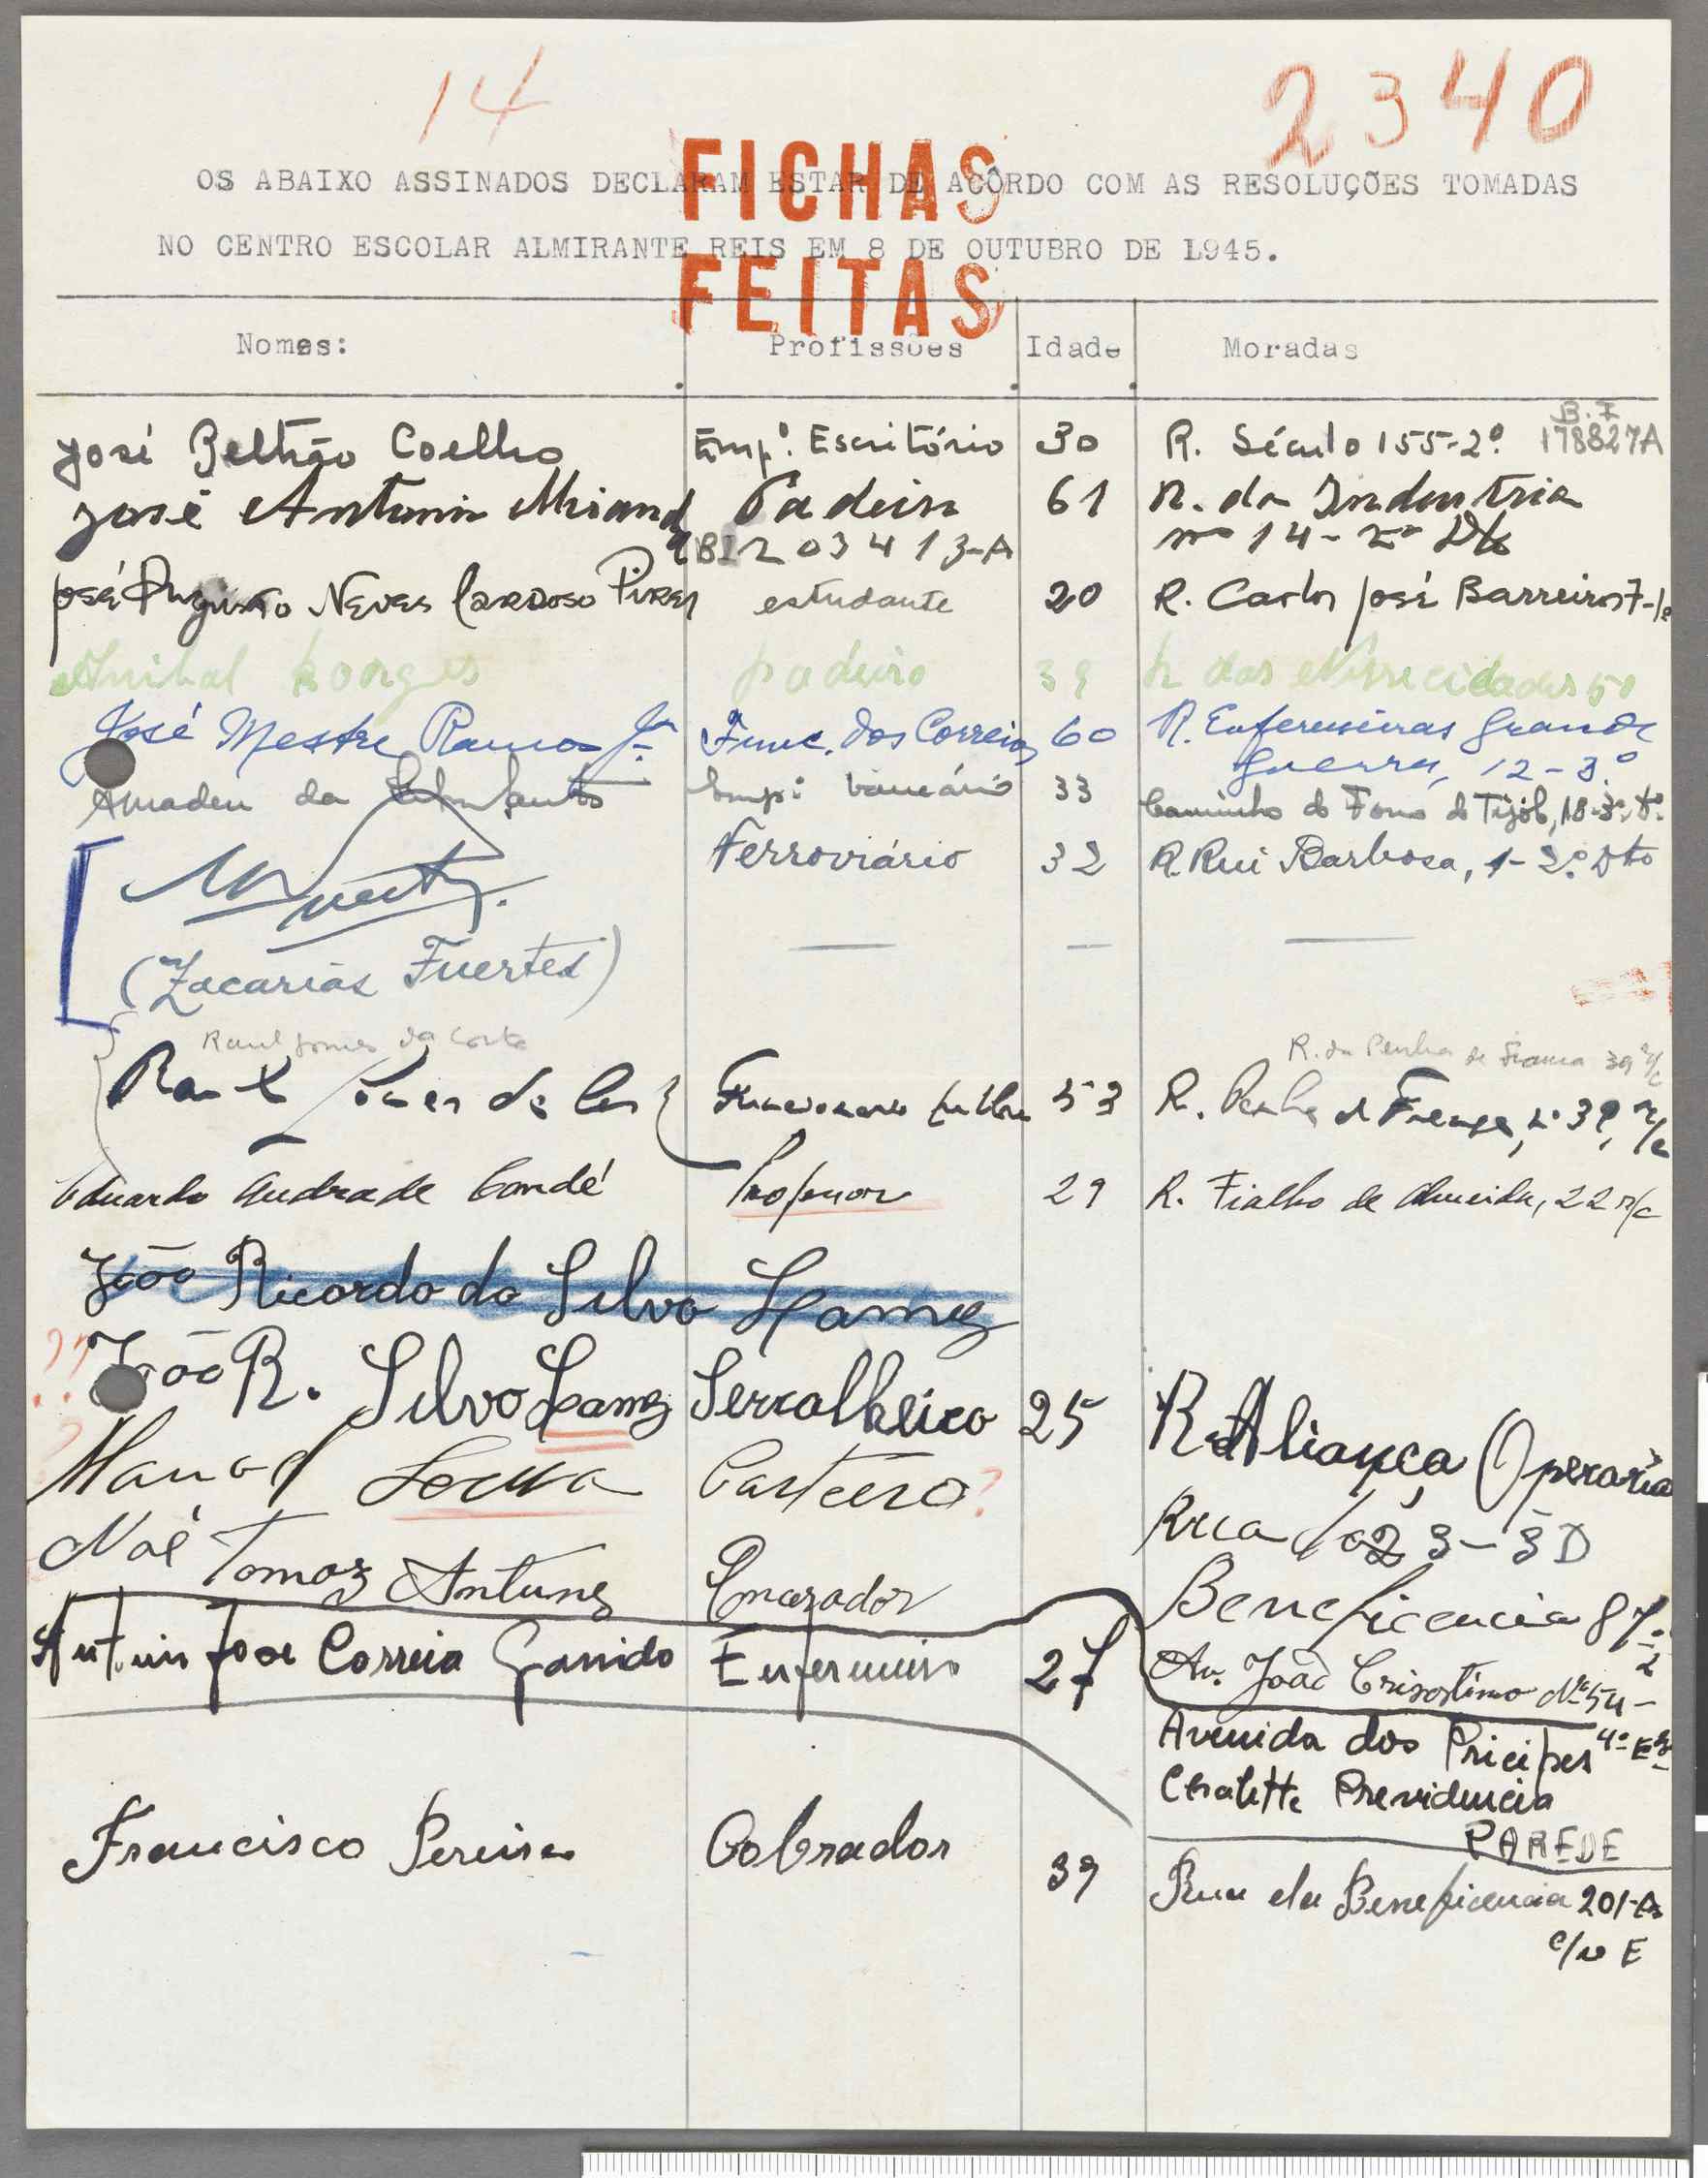 14
2340
FICHAS
FEITAS
OS ABAIXO ASSINADOS DECLARAM ESTAR DE ACÔRDO COM AS RESOLUÇÕES TOMADAS
NO CENTRO ESCOLAR ALMIRANTE REIS EM 8 DE OUTUBRO DE 1945.
Nomes: Profissões Idade Moradas
B.I
José Beltrão Coelho Emp.º Escritório 30 R. Século 155-2º 178827A
José Antonio Miranda Padeiro 61 R. da Industria
BI 203413-A nº 14-2º Dto
José Augusto Neves Cardoso Pires estudante 20 R. Carlos José Barreiros 7-1º
Anibal Borges padeiro 39 R das Necessidades 50
José Mestre Ramos Jr. Func. dos Correios 60 R. Enfermeiras Grande
Guerra, 12-3º
Amadeu da Santos Emp: bancário 33 Caminho do Forno do Tijolo, 18-3º
Ferroviário 32 R. Rui Barbosa, 1-2º Dto
(Zacarias Fuertes)
Raul Gomes da Costa R. da Penha de França 39 r/c
Raul Gomes da Funcionario publico 53 R. Penha de França, nº 39, r/c
Eduardo Andrade Condé Professor 29 R. Fialho de Almeida, 22 r/c
João Ricardo da Silva Lamy
??
João R. Silva Lamy Serralheiro 25 R. Aliança Operaria
Manuel ? Rua 3-3D
Noé Tomaz Antunes Encerador Beneficencia 87-2
Antonio José Correia Garrido Enfermeiro 27 Av. João Crisostimo Nº 54-
4º Eq
Avenida dos Pricipes
Chalette Previdencia
PAREDE
Francisco Pereira Cobrador 39 Rua da Beneficencia 201-A
c/v E